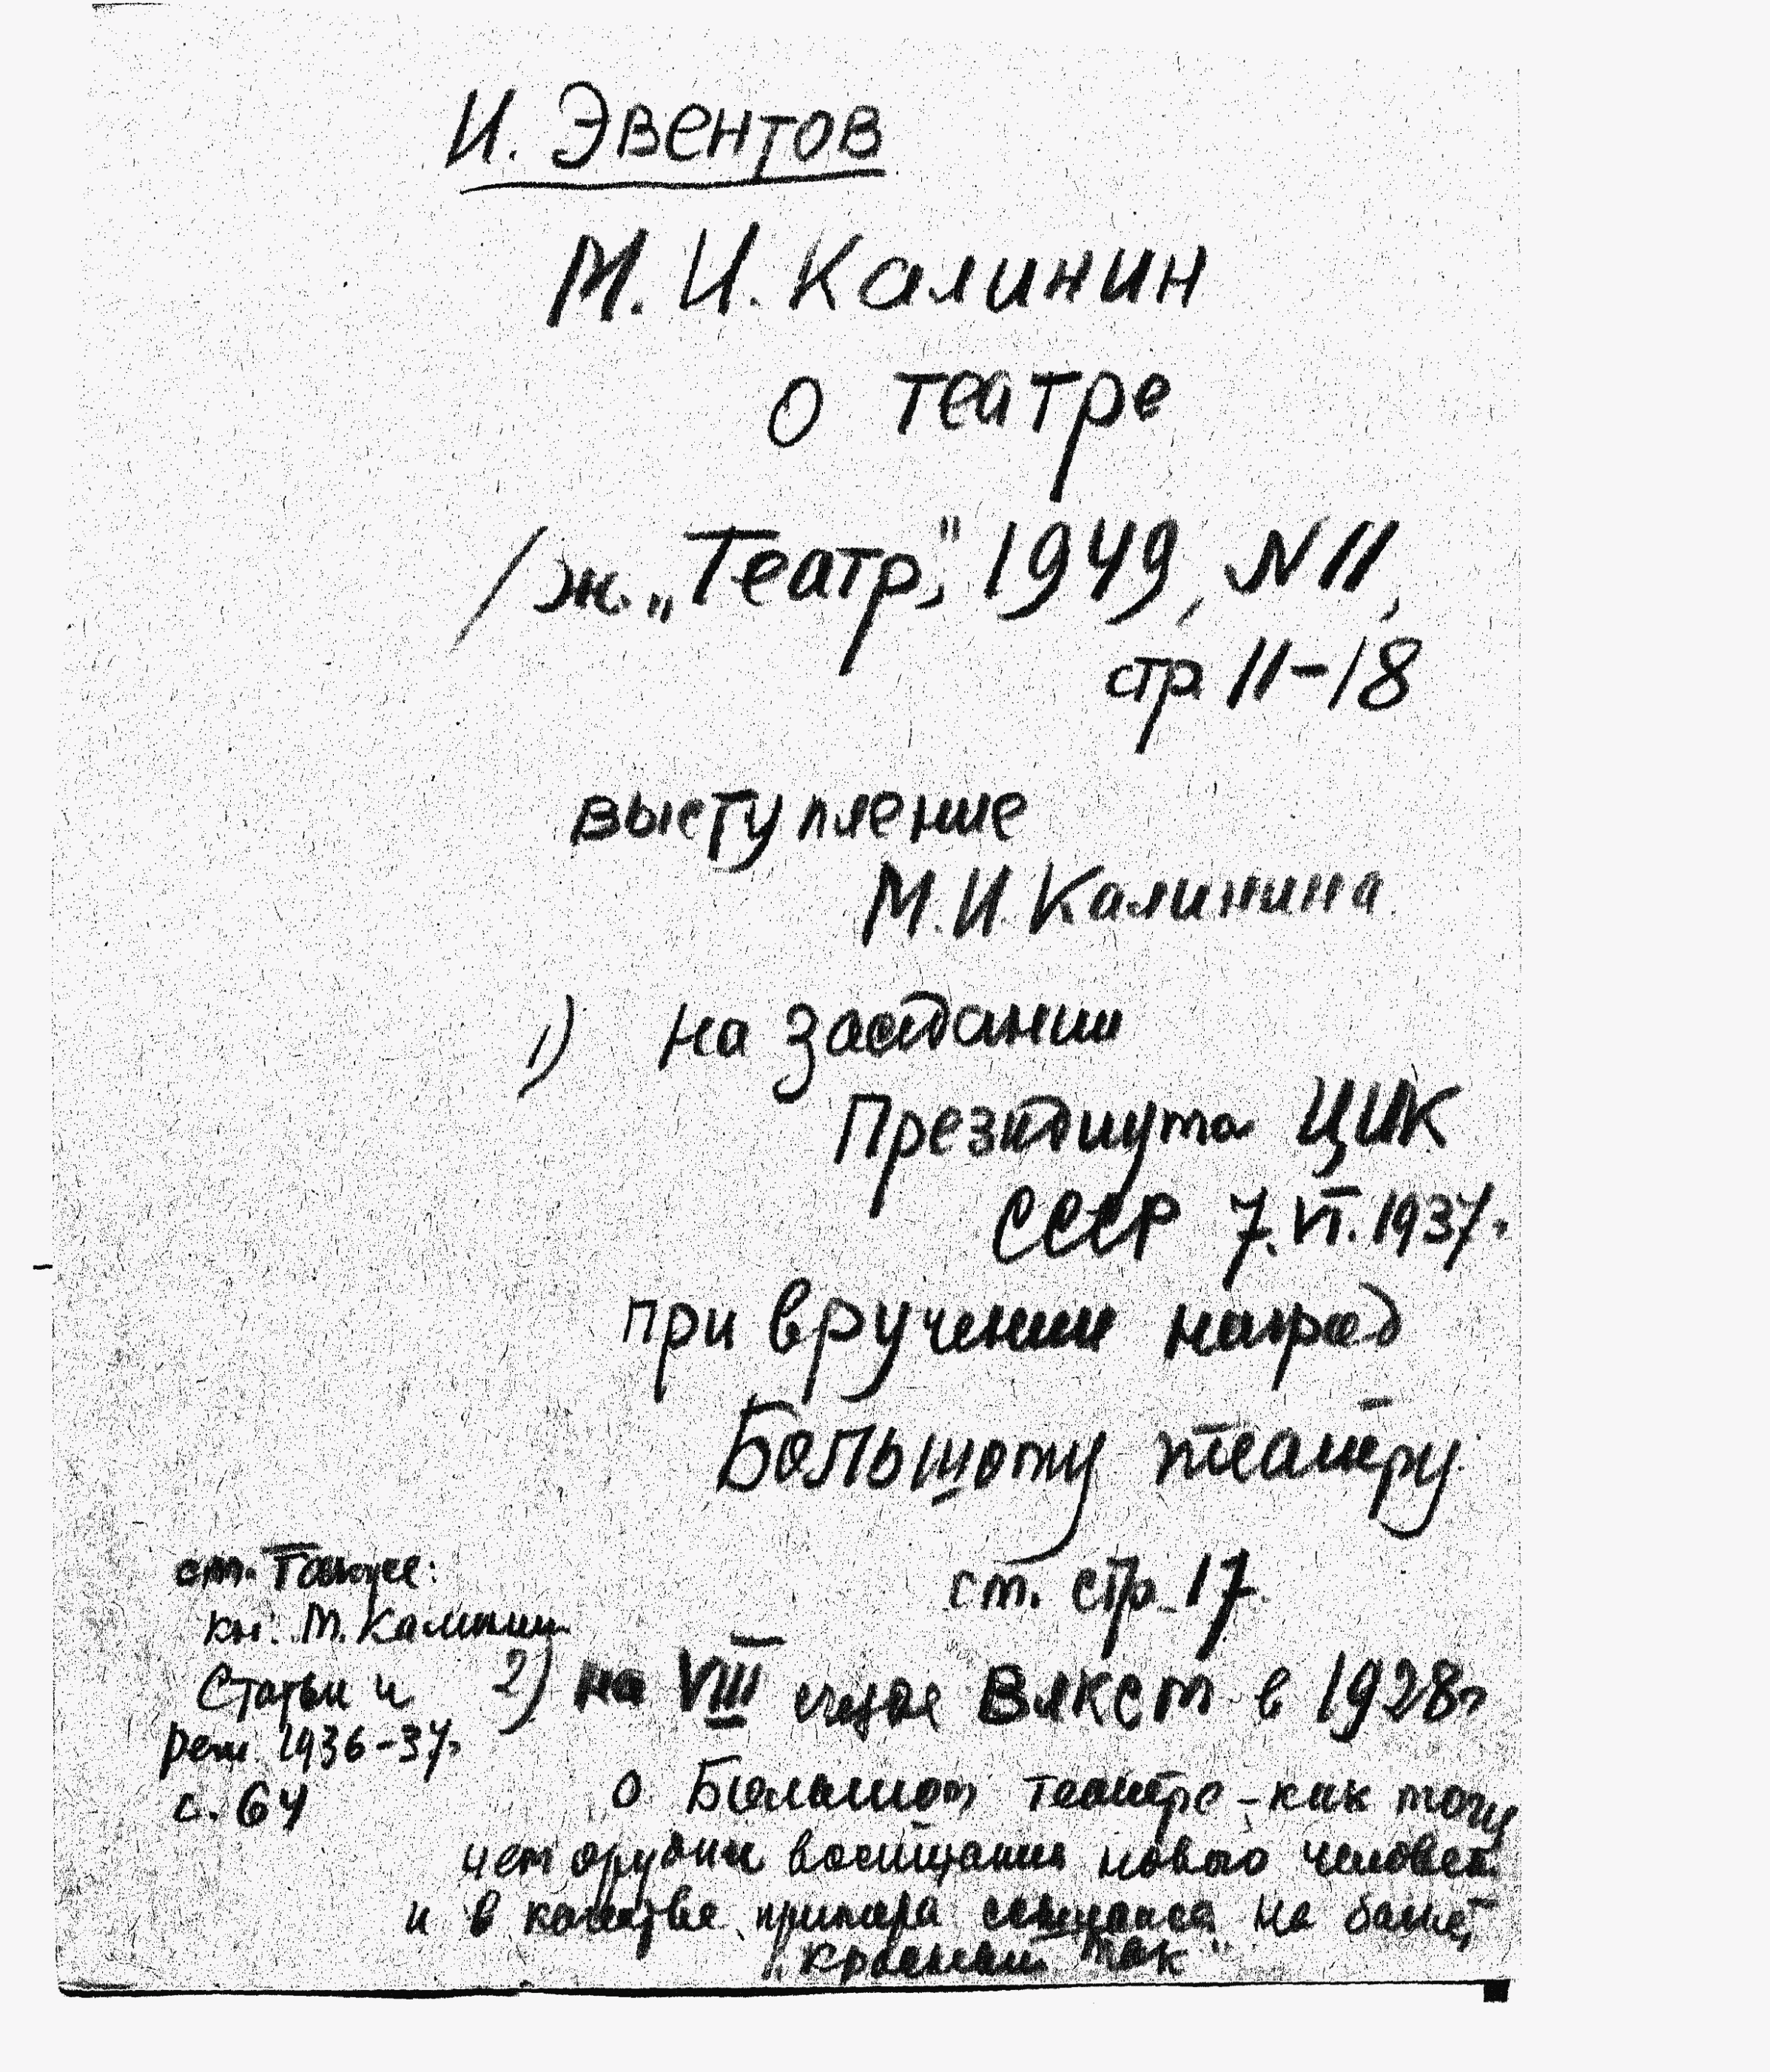 И. Эвентов
М. И. Калинин
о театре
/ж. „Театр", 1949, N 11,
стр 11-18
выступление
М. И. Калинина
1) на заседании
Президиума ЦИК
СССР 7. VI. 1937г.
при вручении наград
Большому театру.
см. стр. 17.
см. также:
кн: М. Калинин
Статьи и
речи 1936-37г.
с. 64
2) на VIII съезде ВЛКСМ в 1928г
о Большом театре - как могу
чем орудии воспитания нового человека
и в качестве примера на балет
„красный мак"